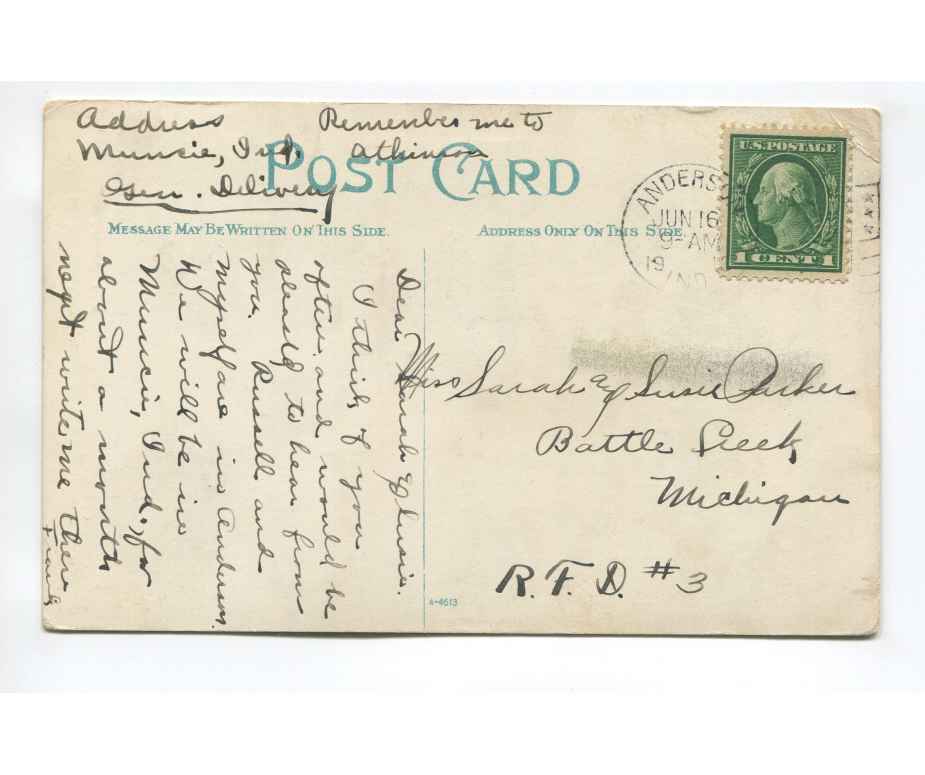 Address
Muncie, Ind.
Gen. Delivery
Remember me to
Atkinson
POST CARD
MESSAGE MAY BE WRITTEN ON THIS SIDE.
ADDRESS ONLY ON THIS SIDE.
ANDERS
JUN 16
9-AM
19
IND
U.S. POSTAGE
1 CENT 1
Dear Sarah & Susie.
I think of you
often, and would be
pleased to hear from
you. Russell and
myself are in Anderson.
We will be in
Muncie, Ind., for
about a month
next write me there
Miss Sarah & Susie Parker
Battle Creek
Michigan
R.F.D. #3
A-4613